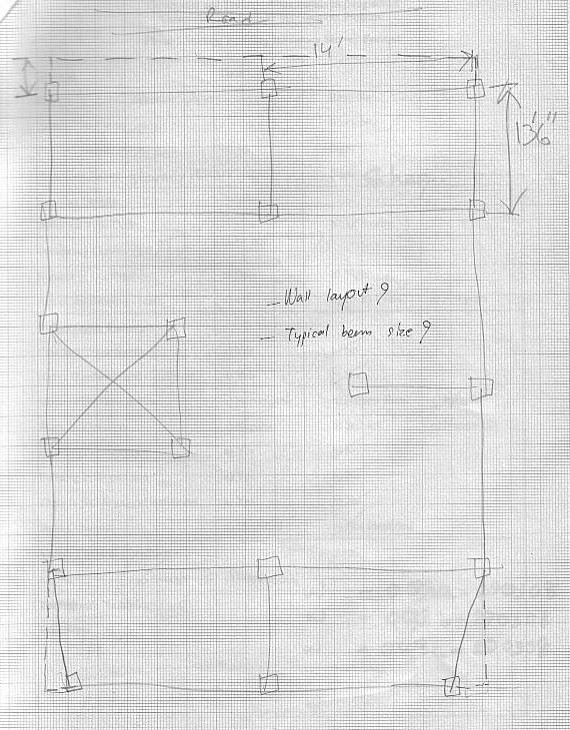 Road
14'
13'6"
- Wall layout ?
- Typical beam size ?